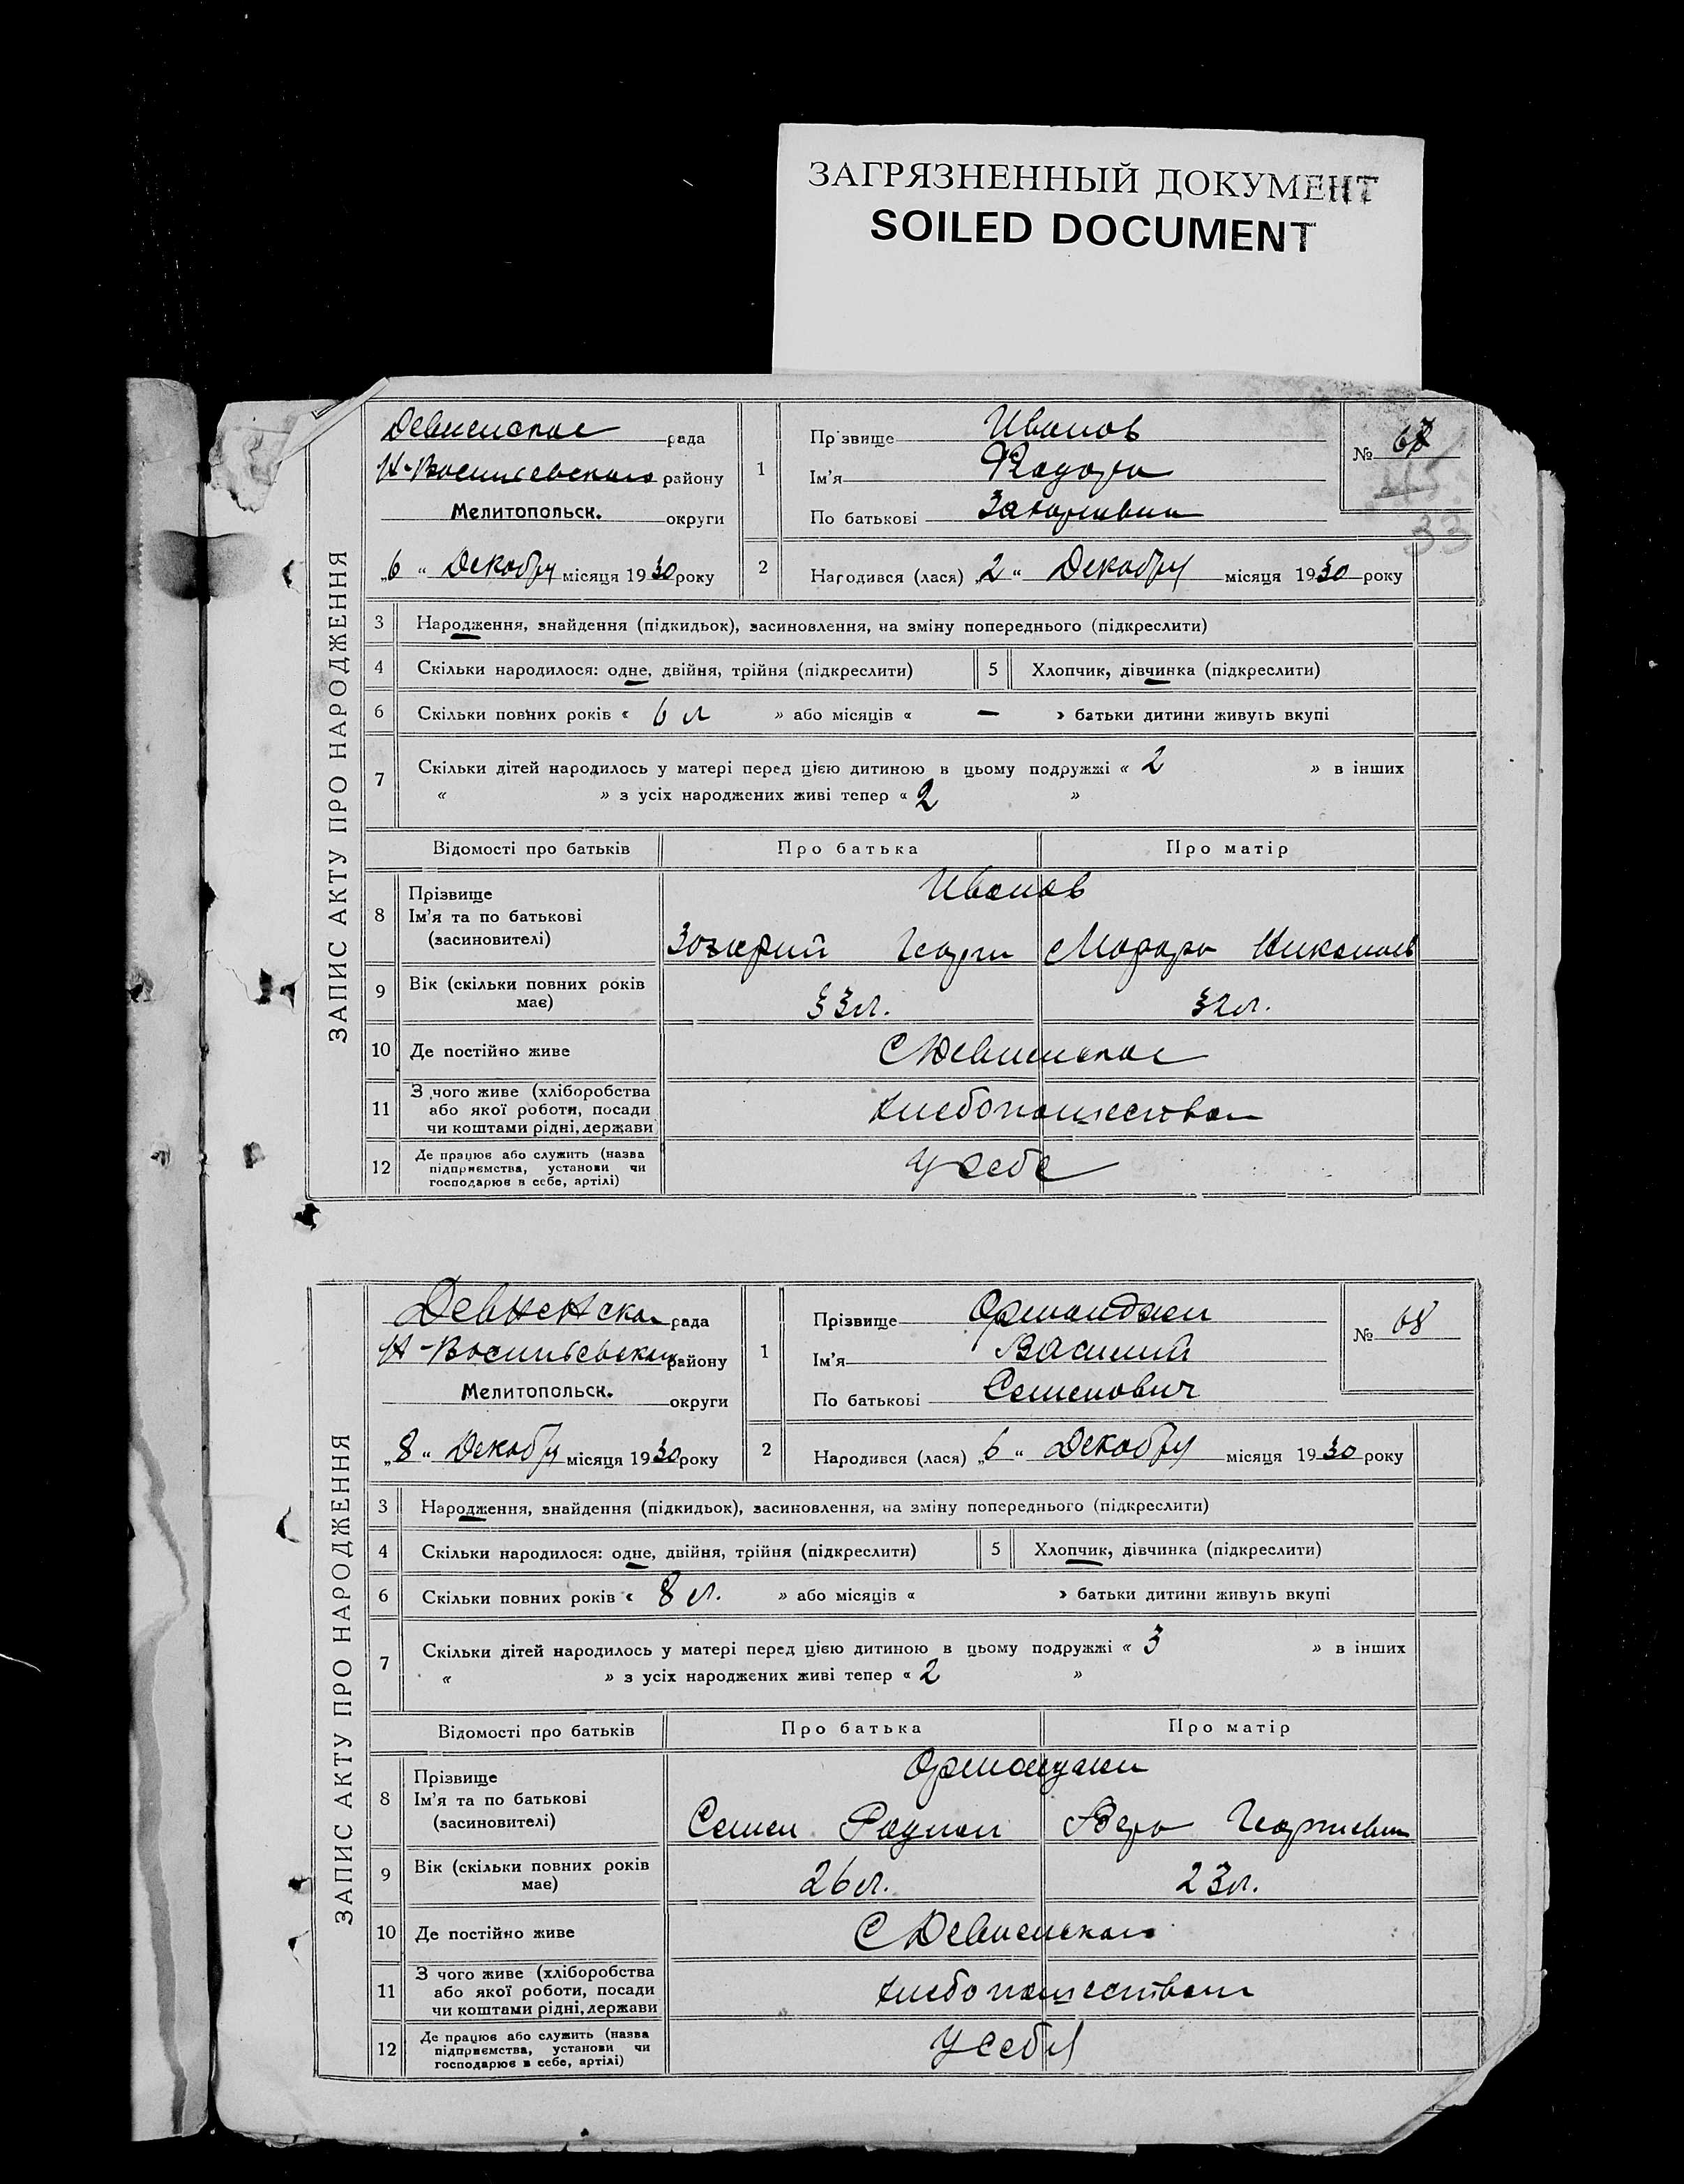 ЗАГРЯЗНЕННЫЙ ДОКУМЕНТ
SOILED DOCUMENT
ЗАПИС АКТУ ПРО НАРОДЖЕННЯ
Девненское рада
Н-Васильевского району
Мелитопольск. округи
„6“ Декабря місяця 1930 року
1
Прізвище Иванов
Ім'я
По батькові Захариевна
№ 67
33
2
Народився (лася) „2“ Декабря місяця 1930 року
3 Народження, знайдення (підкидьок), засиновлення, на зміну попереднього (підкреслити)
4 Скільки народилося: одне, двійня, трійня (підкреслити) 5 Хлопчик, дівчинка (підкреслити)
6 Скільки повних років « 6 л » або місяців « — » батьки дитини живуть вкупі
7 Скільки дітей народилось у матері перед цією дитиною в цьому подружжі « 2 » в інших
« » з усіх народжених живі тепер « 2 »
Відомості про батьків Про батька Про матір
8 Прізвище
Ім'я та по батькові
(засиновителі)
Иванов
Захарий Георги Николаев
9 Вік (скільки повних років
має)
33 л. 32 л.
10 Де постійно живе С Девненское
11 З чого живе (хліборобства
або якої роботи, посади
чи коштами рідні, держави
хлебопашеством
12 Де працює або служить (назва
підприємства, установи чи
господарює в себе, артілі)
У себе
ЗАПИС АКТУ ПРО НАРОДЖЕННЯ
Девненска рада
Н-Васильевская району
Мелитопольск. округи
„8“ Декабря місяця 1930 року
1
Прізвище Арманджи
Ім'я Василий
По батькові Семенович
№ 68
2
Народився (лася) „6“ Декабря місяця 1930 року
3 Народження, знайдення (підкидьок), засиновлення, на зміну попереднього (підкреслити)
4 Скільки народилося: одне, двійня, трійня (підкреслити) 5 Хлопчик, дівчинка (підкреслити)
6 Скільки повних років « 8 л. » або місяців « » батьки дитини живуть вкупі
7 Скільки дітей народилось у матері перед цією дитиною в цьому подружжі « 3 » в інших
« » з усіх народжених живі тепер « 2 »
Відомості про батьків Про батька Про матір
8 Прізвище
Ім'я та по батькові
(засиновителі)
Семен Родион Вера Георгиевн
9 Вік (скільки повних років
має)
26 л. 23 л.
10 Де постійно живе С Девненская
11 З чого живе (хліборобства
або якої роботи, посади
чи коштами рідні, держави
хлебопашеством
12 Де працює або служить (назва
підприємства, установи чи
господарює в себе, артілі)
У себя